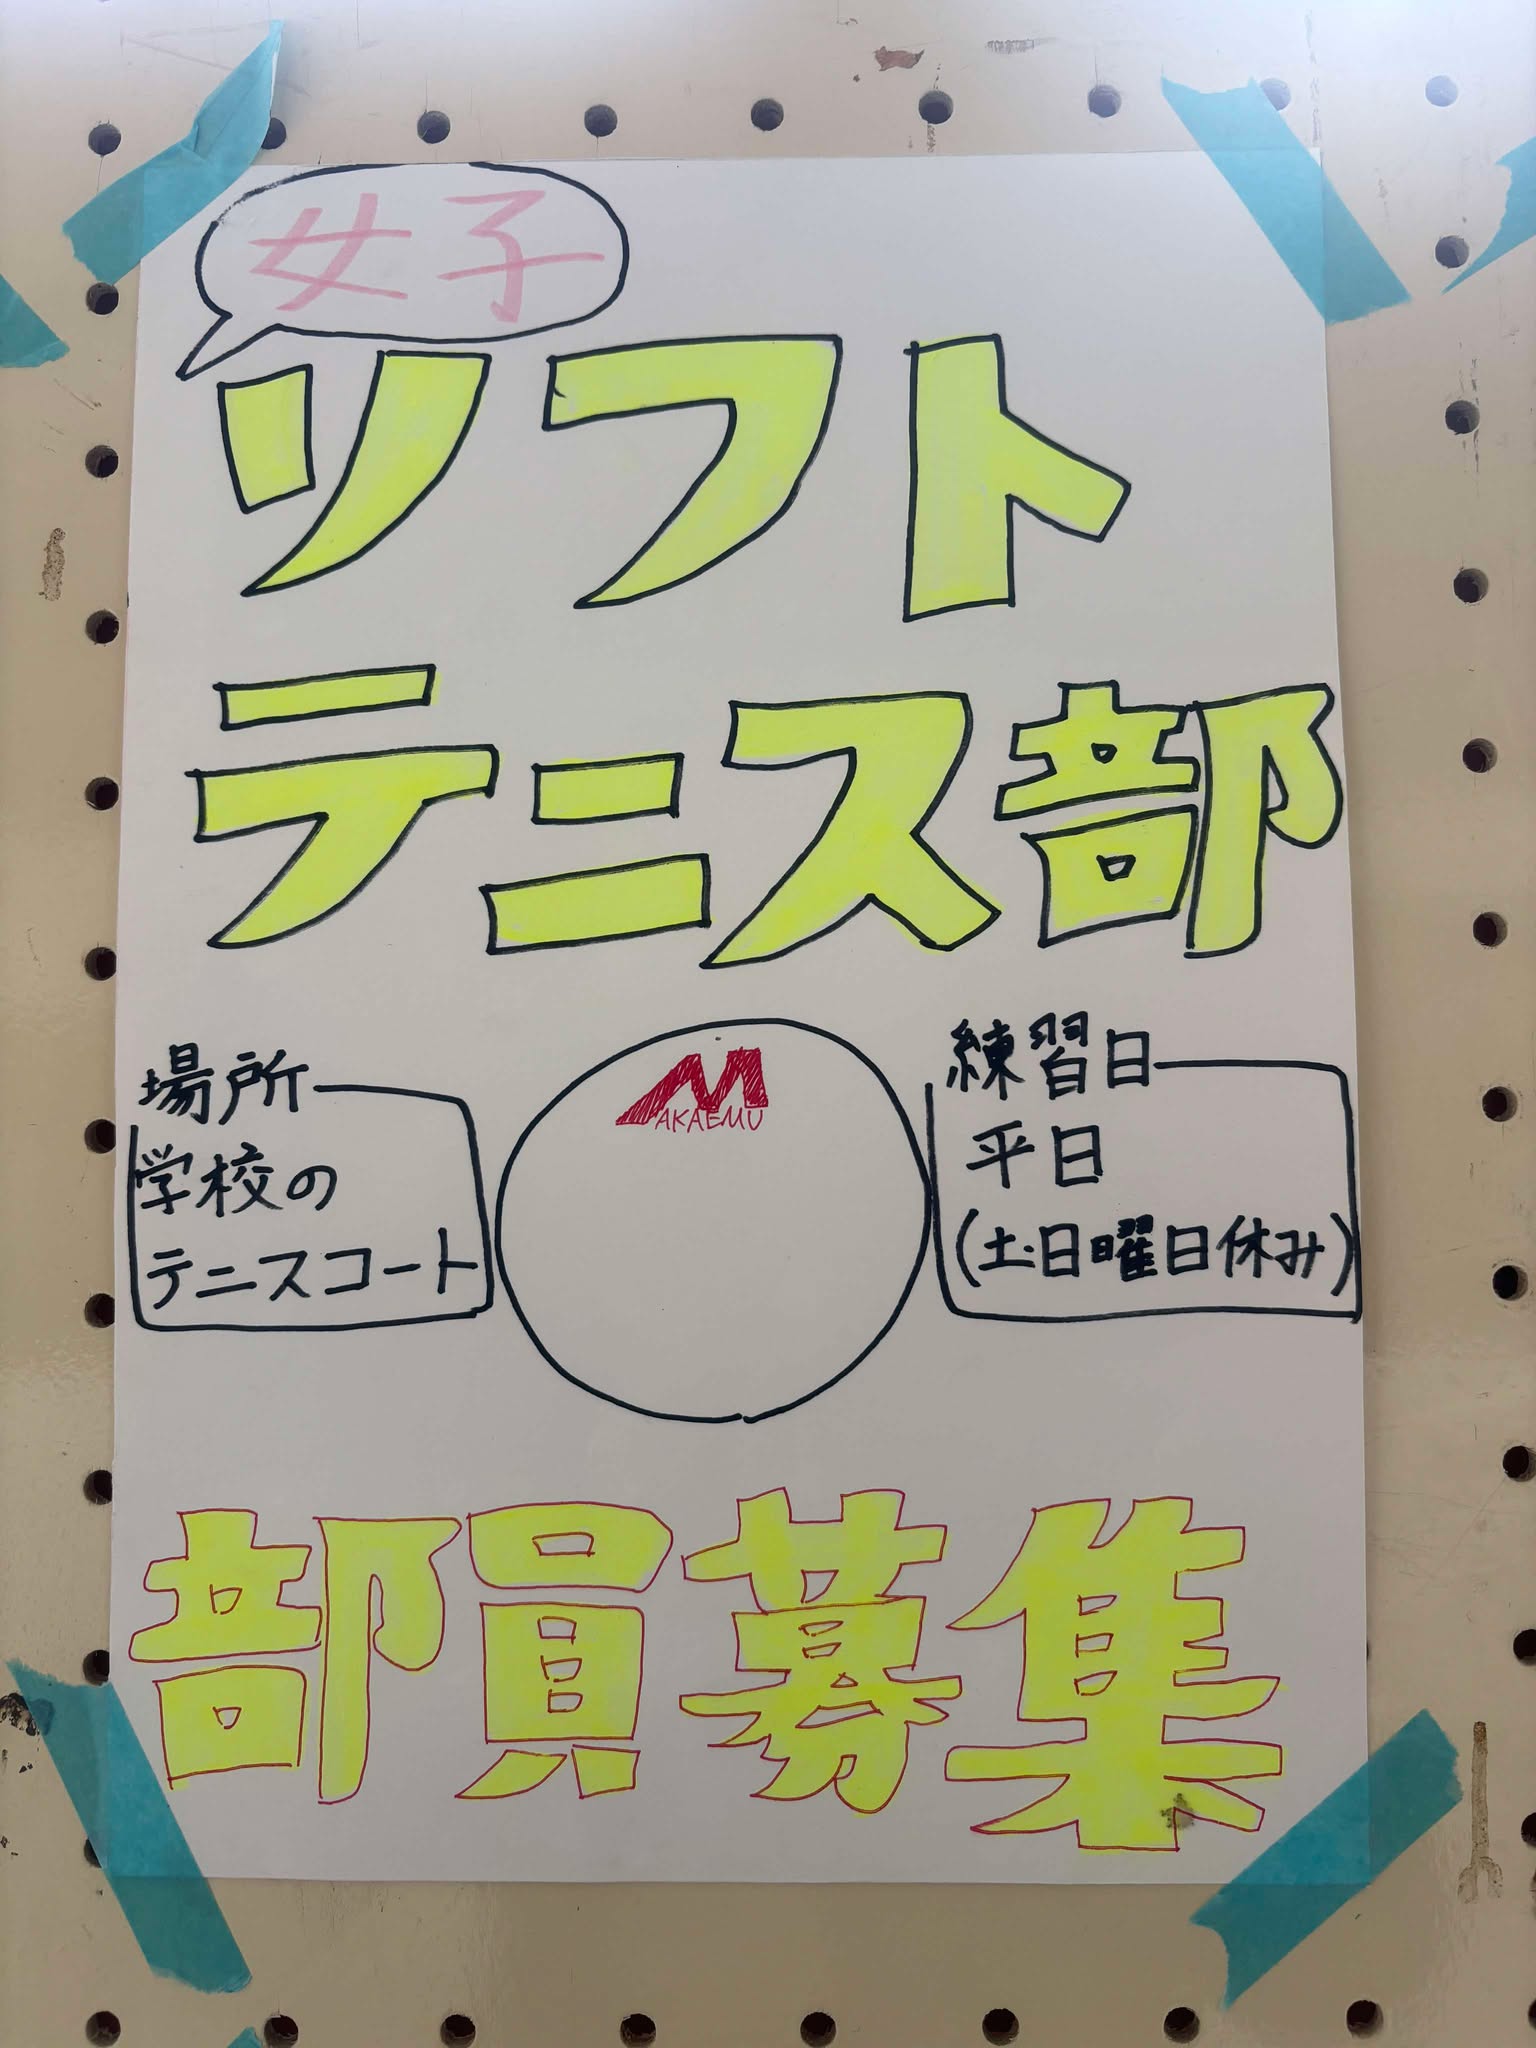 女子
ソフト
テニス部
場所
学校の
テニスコート
MAKAEMU
練習日
平日
(土日曜日休み)
部員募集